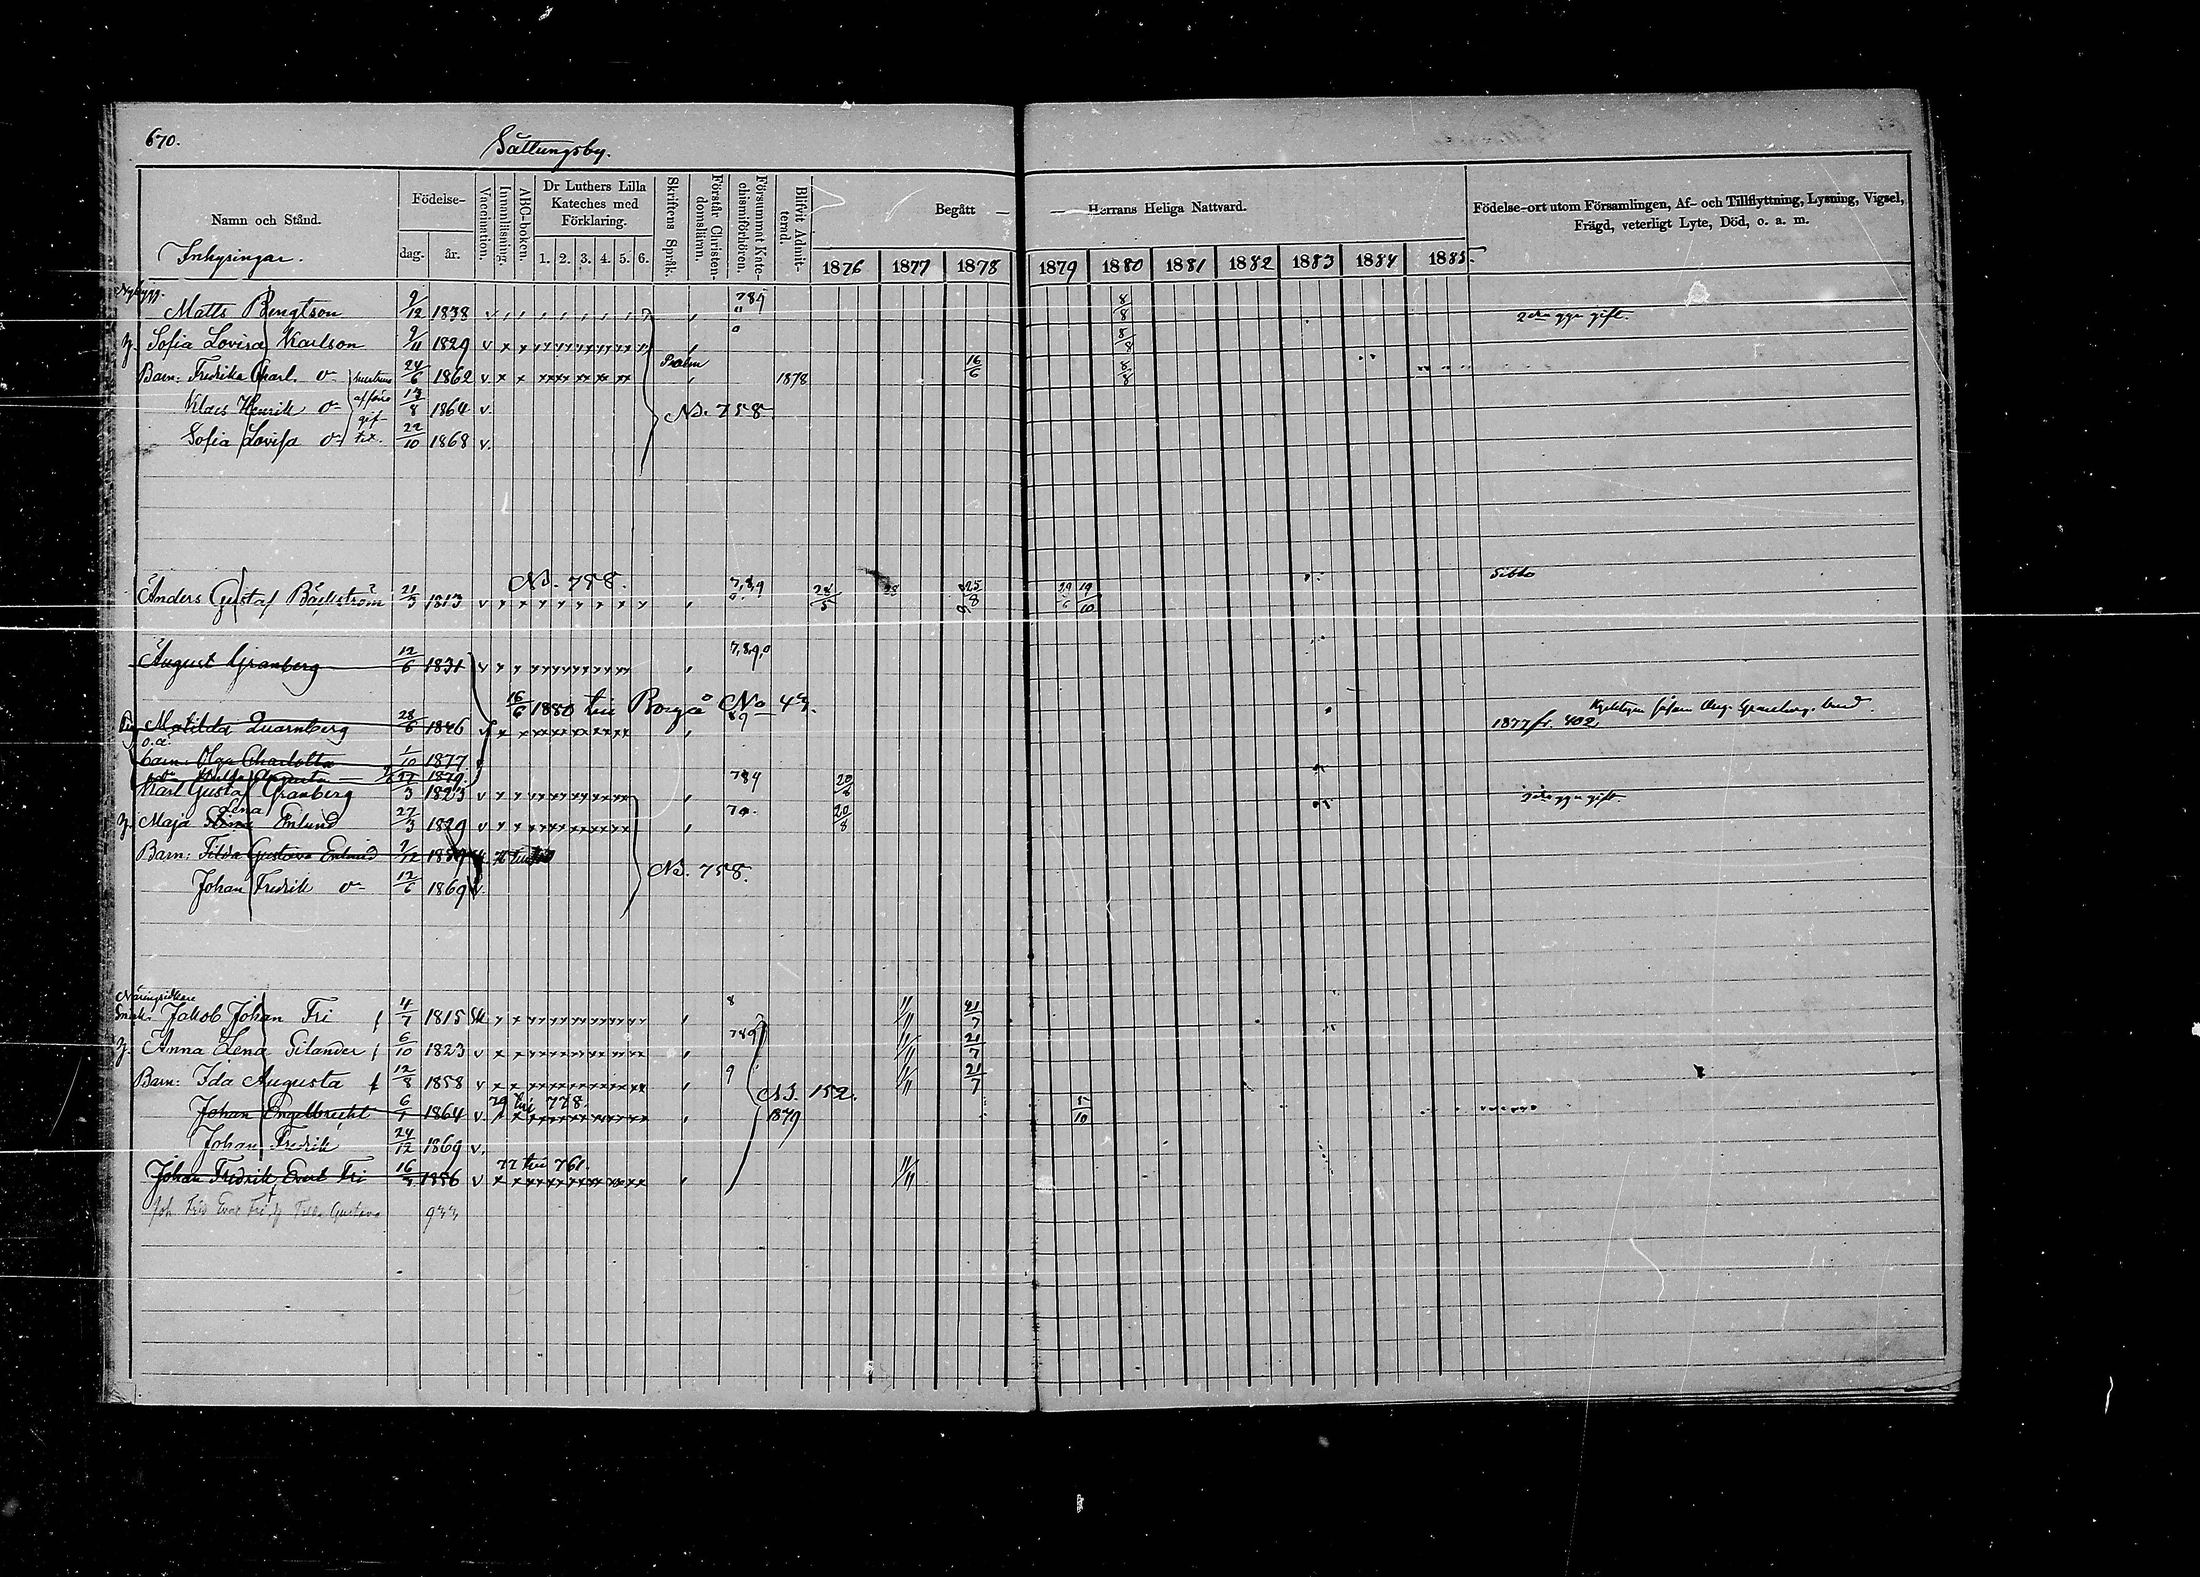 670.
Sattungsby.
Namn och Stånd.
Inhysingar.
Födelse-
dag. år.
Vaccination.
Innanläsning.
ABC-boken.
Dr Luthers Lilla Kateches med Förklaring.
1. 2. 3. 4. 5. 6.
Skriftens Språk.
Förstår Christendomsläran.
Försummat Katechismiförhören.
Blifvit Admitterad.
Begått — — Herrans Heliga Nattvard.
1876 1877 1878 1879 1880 1881 1882 1883 1884 1885.
Födelse-ort utom Församlingen, Af- och Tillflyttning, Lysning, Vigsel,
Frägd, veterligt Lyte, Död, o. a. m.
Nybygg.
Matts Bengtson 9/12 1838 v 789 8/8 2dra ggn gift.
h. Sofia Lovisa Karlson 9/11 1829 v 0 8/8
Barn: Fredrika Charl. 24/6 1862 v. Psalm 1878 16/6 8/8
Klaes Henrik 13/8 1864 v. Nd. 758
Sofia Lovisa 22/10 1868 v.
Nd. 758. Sibbo
Anders Gustaf Bäckström 21/3 1813 v 7,8,9 0. 28/5 25/8 29/6 19/10
August Granberg 12/6 1831 v 7,8,9,0
16/6 1880 till Borgå No 49.
Matilda Quarnberg 28/6 1846 89 1877 fr. 402
o.ä.
barn: Olga Charlotta 1/10 1877
Augusta 1879
Karl Gustaf Granberg 3 1823 v 789 20/8 gift.
h. Maja Lena Enlund 27/3 1829 v 70. 20/8
Barn: Tilda Gustava Enlund 9/12 1859
Johan Fredrik 12/6 1869 v. Nd. 758.
Näringsidkare
Jakob Johan Fri 4/7 1815 8 11/11 21/7
h. Anna Lena Silander 6/10 1823 v 789 11/11 21/7
Barn: Ida Augusta 12/8 1858 v 9 11/11 21/7
Nd. 152.
79 till 778.
Johan Engelbrecht 6/1 1864 v. 1879 5/10
Johan Fredrik 24/12 1869 v.
77 till 761.
Johan Fredrik Evert Fri 16/3 1856 v 11/11
Joh Frid Evert Fri Tilda Gustava 933